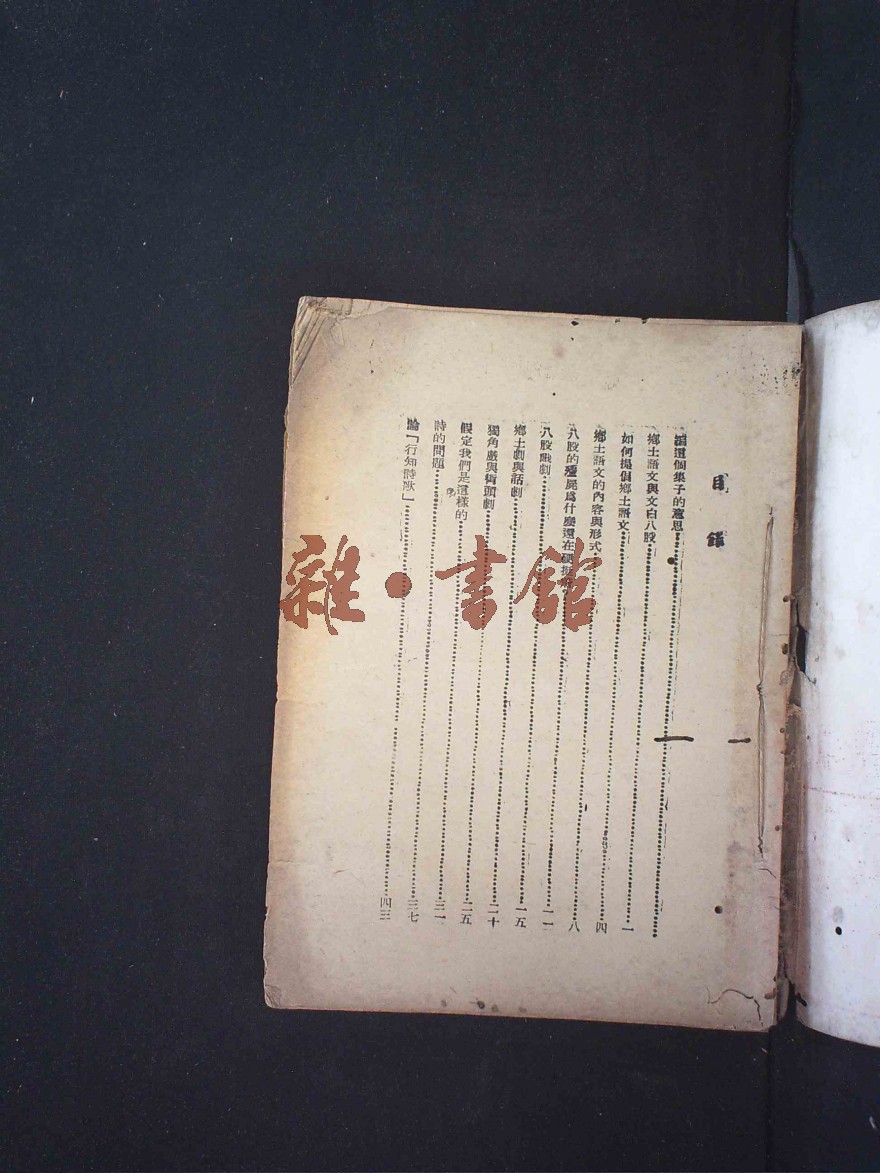 目錄
編這個集子的意思
鄉土語文與文白八股……一
如何提倡鄉土語文……四
鄉土語文的內容與形式……八
八股的殭屍爲什麽還在硬……一一
八股劇……一五
鄉土劇與話劇……二十
獨角戲與街頭劇……二五
假定我們是這樣的……三一
詩的問題……三七
論「行知詩歌」……四三
一
雜·書館